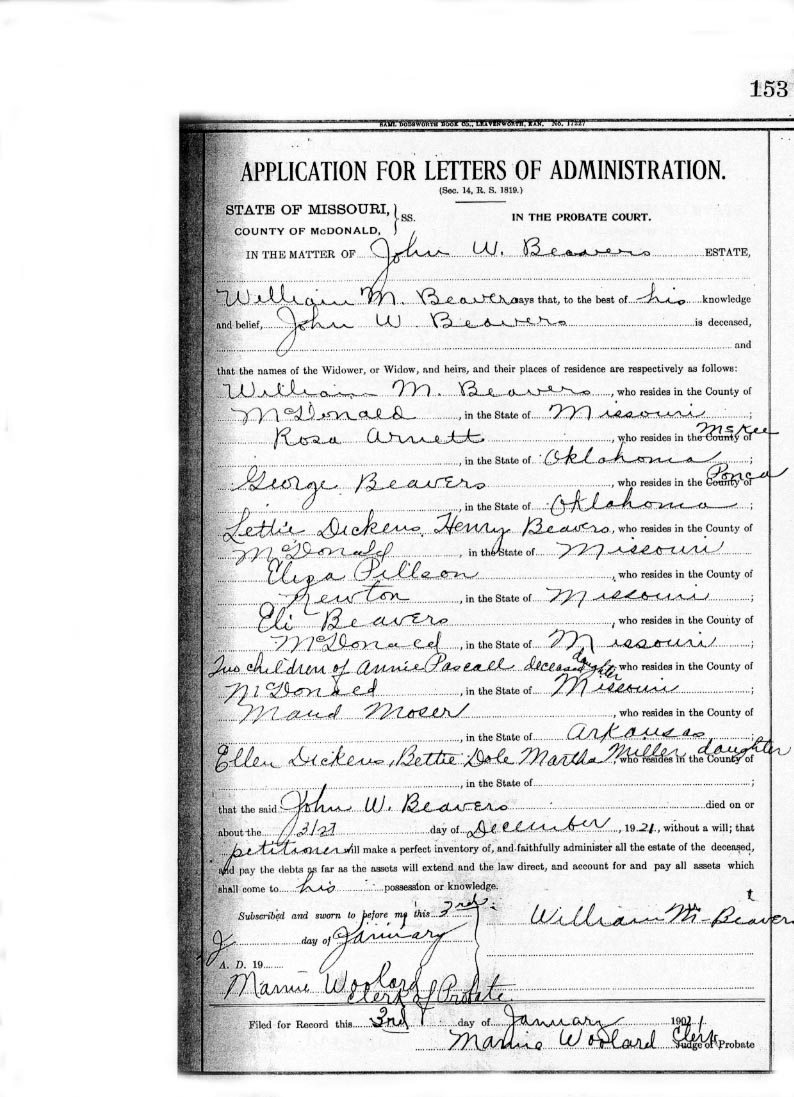 153
SAML DODSWORTH BOOK CO., LEAVENWORTH, KAN. No. 17227
APPLICATION FOR LETTERS OF ADMINISTRATION.
(Sec. 14, R. S. 1819.)
STATE OF MISSOURI,
COUNTY OF McDONALD, } SS. IN THE PROBATE COURT.
IN THE MATTER OF John W. Beavers ESTATE,
William M. Beavers says that, to the best of his knowledge
and belief, John W Beavers is deceased,
and
that the names of the Widower, or Widow, and heirs, and their places of residence are respectively as follows:
William M. Beavers, who resides in the County of
McDonald, in the State of Missouri;
Rosa Arnett, who resides in the County of McKee
, in the State of Oklahoma;
George Beavers, who resides in the County of Ponca
, in the State of Oklahoma;
Lettie Dickens, Henry Beavers, who resides in the County of
McDonald, in the State of Missouri
Eliza Pillson, who resides in the County of
Newton, in the State of Missouri;
Eli Beavers, who resides in the County of
McDonald, in the State of Missouri;
Two children of Annie Pascall deceased daughter who resides in the County of
McDonald, in the State of Missouri;
Maud Moser, who resides in the County of
, in the State of Arkansas;
Ellen Dickens, Bettie Dole Martha Miller, daughter who resides in the County of
, in the State of ;
that the said John W. Beavers died on or
about the day of December, 1921, without a will; that
petitioner will make a perfect inventory of, and faithfully administer all the estate of the deceased,
and pay the debts as far as the assets will extend and the law direct, and account for and pay all assets which
shall come to his possession or knowledge.
Subscribed and sworn to before me this 3rd
day of January
William M. Beavers
A. D. 19
Mannie Woolard
Clerk of Probate
Filed for Record this 3rd day of January 190
Mannie Woolard Clerk
Judge of Probate